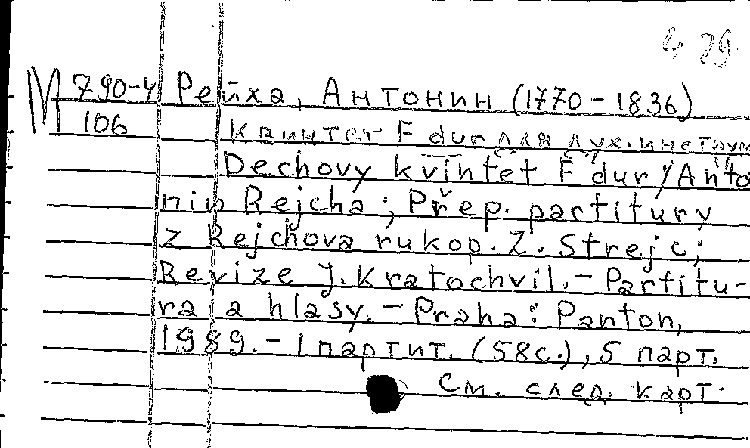 М 790-4 Рейха, Антонин (1770-1836)
106 Квинтет F dur для дух. инструм
Dechovy kvintet F dur / Anto
nin Rejcha; Přep. partitury
z Rejchova rukop. Z. Strejc;
Revize J. Kratochvil. - Partitu-
ra a hlasy. - Praha: Panton,
1989. - 1 партит. (58с.), 5 парт.
См. след. карт.